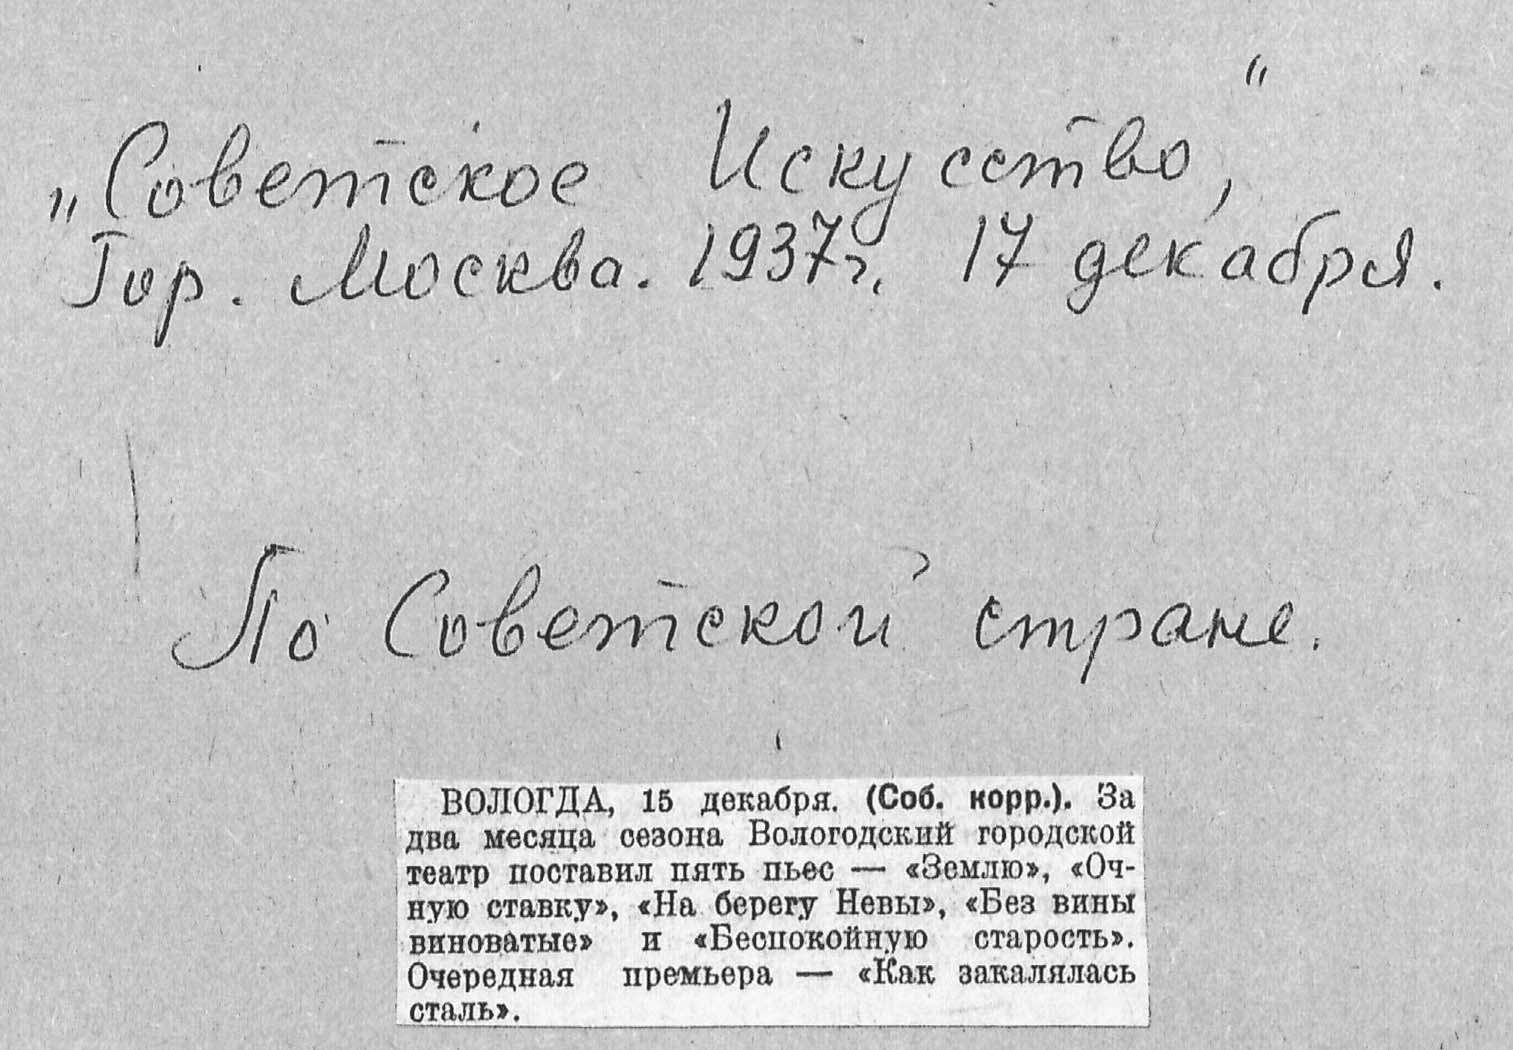 „Советское Искусство,“
Гор. Москва. 1937г. 17 декабря.
По Советской стране.
ВОЛОГДА, 15 декабря. (Соб. корр.). За
два месяца сезона Вологодский городской
театр поставил пять пьес — «Землю», «Оч-
ную ставку», «На берегу Невы», «Без вины
виноватые» и «Беспокойную старость».
Очередная премьера — «Как закалялась
сталь».